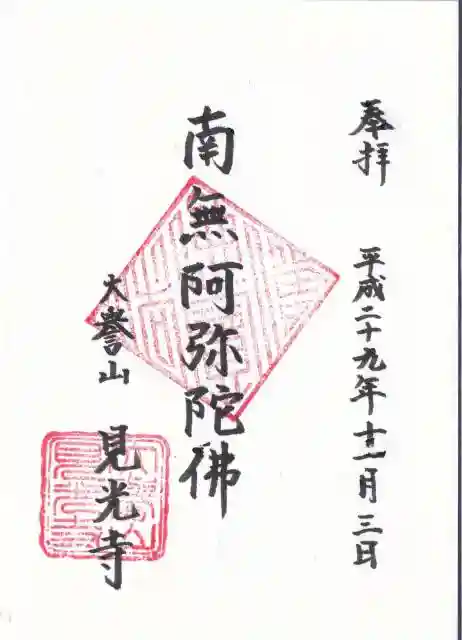 奉拝
平成二十九年十一月三日
南無阿弥陀佛
大誉山
見光寺